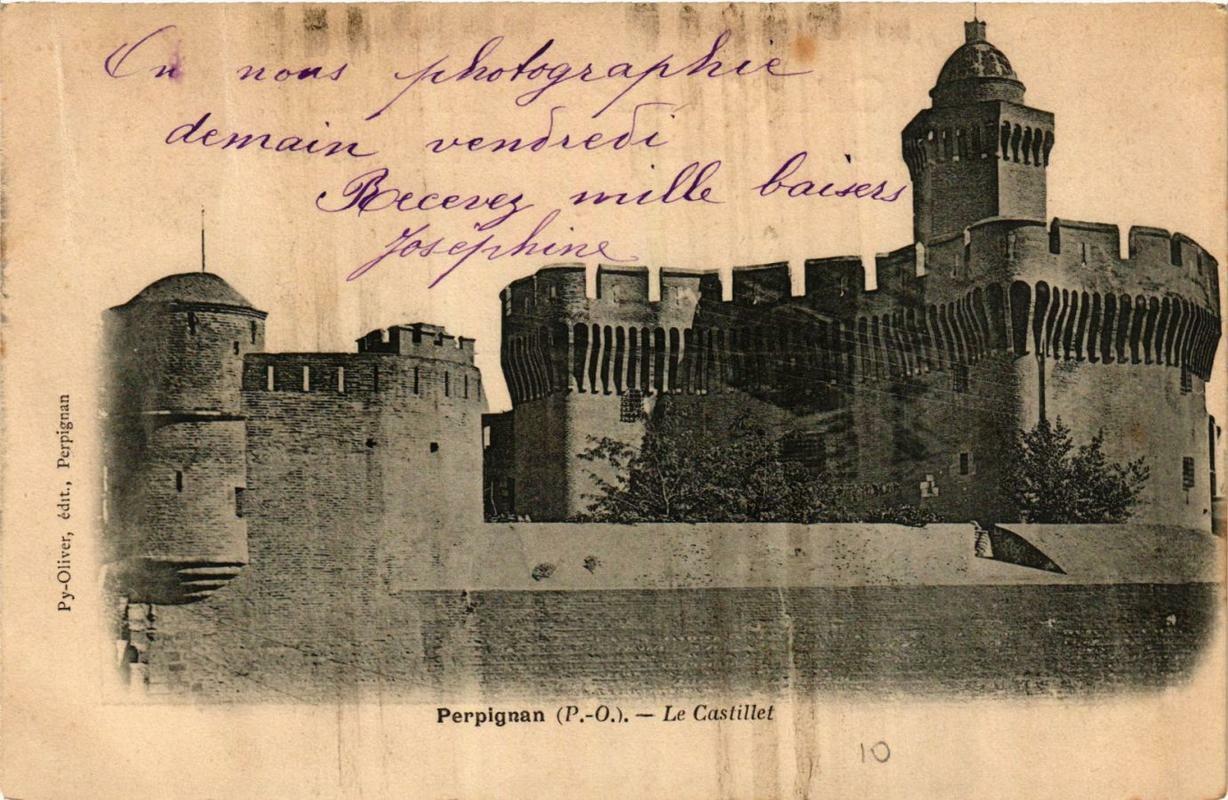 On nous photographie
demain vendredi
Recevez mille baisers
Joséphine
Py-Oliver, édit., Perpignan
Perpignan (P.-O.). — Le Castillet
10